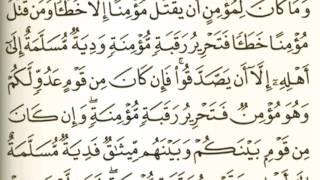 وَمَا كَانَ لِمُؤْمِنٍ أَن يَقْتُلَ مُؤْمِنًا إِلَّا خَطَـًٔا وَمَن قَتَلَ
مُؤْمِنًا خَطَـًٔا فَتَحْرِيرُ رَقَبَةٍ مُّؤْمِنَةٍ وَدِيَةٌ مُّسَلَّمَةٌ إِلَىٰٓ
أَهْلِهِۦٓ إِلَّآ أَن يَصَّدَّقُوا۟ فَإِن كَانَ مِن قَوْمٍ عَدُوٍّ لَّكُمْ
وَهُوَ مُؤْمِنٌ فَتَحْرِيرُ رَقَبَةٍ مُّؤْمِنَةٍ ۖ وَإِن كَانَ
مِن قَوْمٍۭ بَيْنَكُمْ وَبَيْنَهُم مِّيثَـٰقٌ فَدِيَةٌ مُّسَلَّمَةٌ